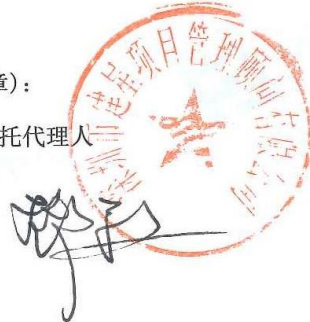 章）：
托代理人
深圳市建星项目管理顾问有限公司